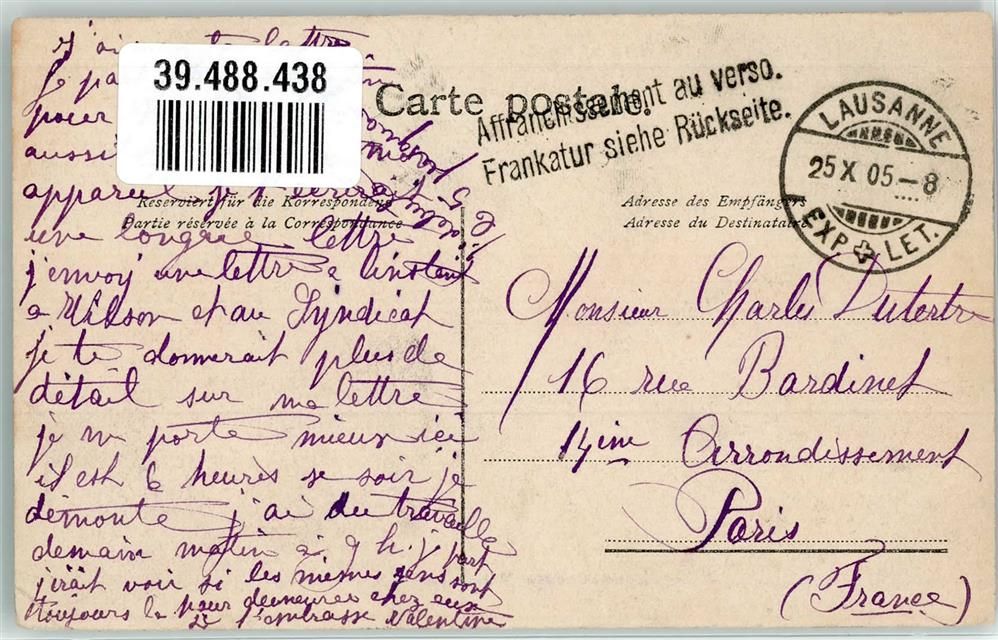 j'ai lettre
je
pour
39.488.438
aussi
appareil je t'écrirait
une longue lettre
j'envoj une lettre a l'instant
a Wilson et au Syndicat
je te donnerait plus de
détail sur ma lettre
je m porte mieux ici
il est 6 heures se soir je
démonte j'ai du travaille
demain matin a 9 h. j part
j'irait voir si les mêmes gens sont
toujours la pour demeurer chez eux
Je t'embrasse Valentine
Carte postale.
Affranchissement au verso.
Frankatur siehe Rückseite.
LAUSANNE
25 X 05 – 8
EXP LET.
Reserviert für die Korrespondenz
Partie réservée à la Correspondance
Adresse des Empfängers
Adresse du Destinataire
Monsieur Charles Dutertre
16 rue Bardinet
14ème Arrondissement
Paris
(France)